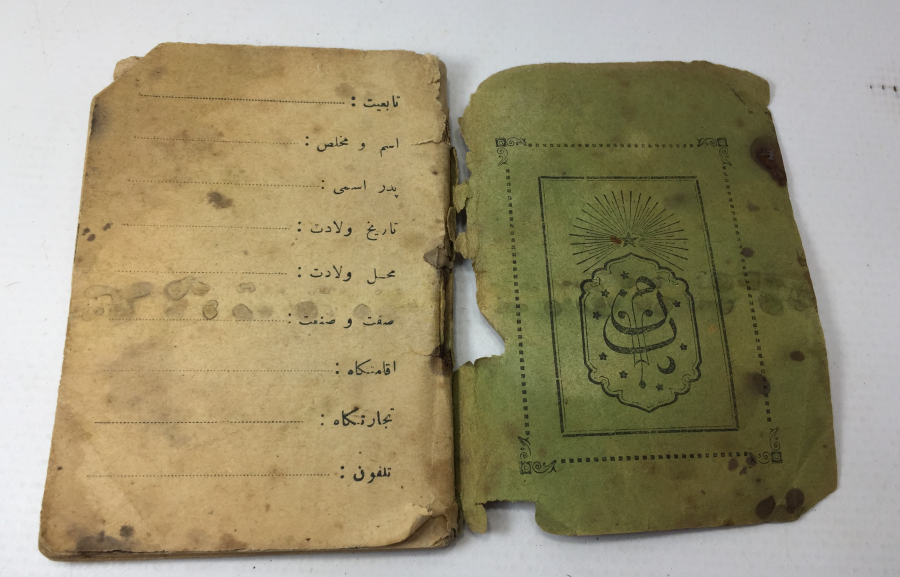 تابعیت :
اسم و مخلص :
پدر اسمی :
تاریخ ولادت :
محل ولادت :
صفت و صنعت :
اقامتگاه :
تجارتگاه :
تلفون :